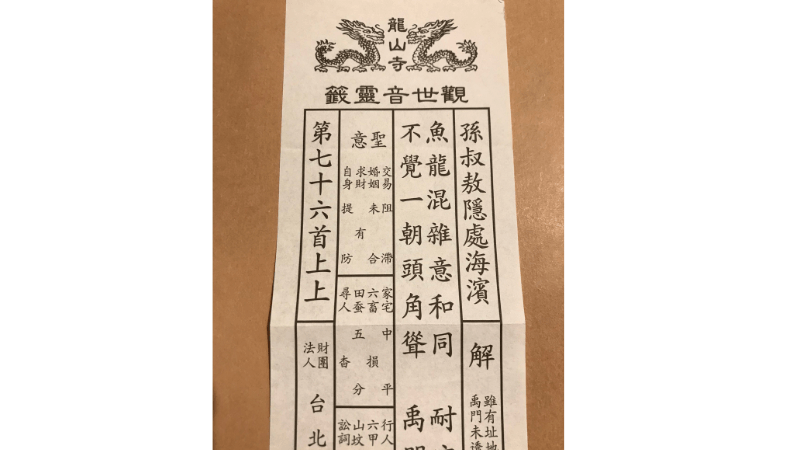 龍山寺
觀世音靈籤
孫叔敖隱處海濱
解
雖有址地
禹門未透
魚龍混雜意和同 耐
不覺一朝頭角聳 禹
聖意
交易阻滯
婚姻未合
求財有
自身提防
家宅中平
六畜損
田蚕五分
尋人杳
行人
六甲
山坟
訟詞
第七十六首上上
財團法人
台北